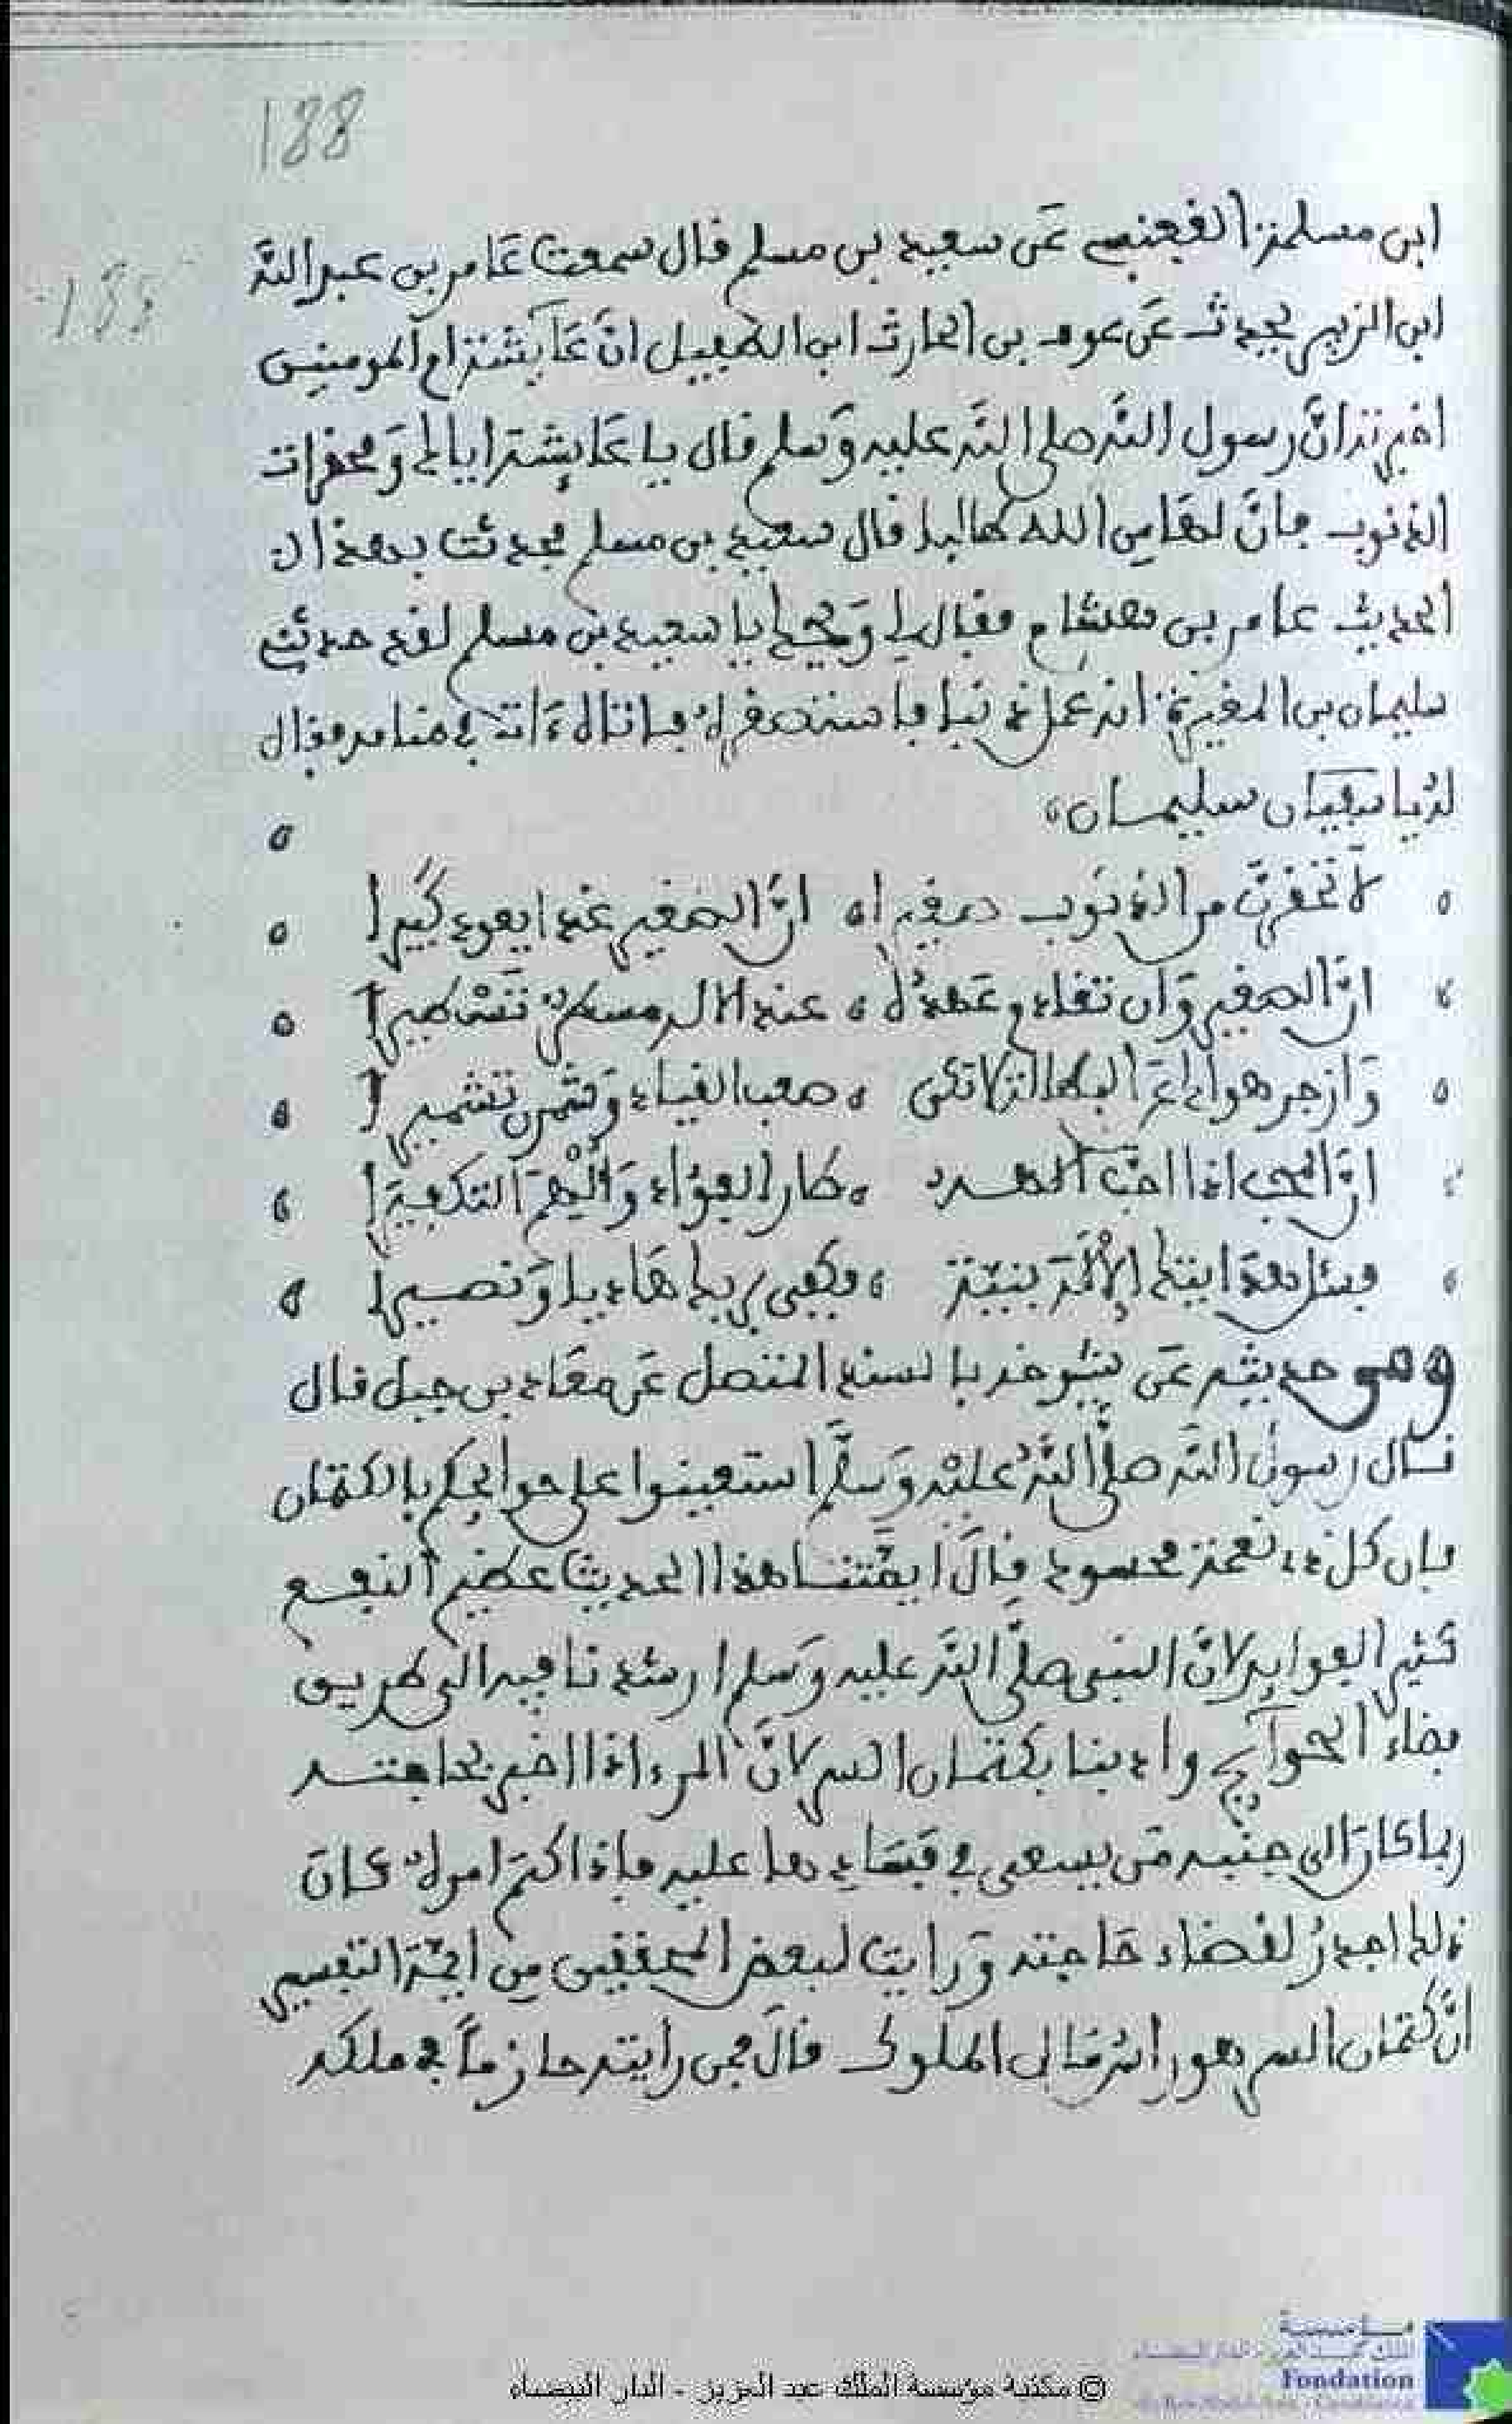 188
188
ابن مسلمة القعنبي عن سعيد بن مسلم قال سمعت عَامر بن عبد الله
ابن الزبير يحدث عَن عوف بن الحارث ابن الطفيل انّ عَائشة ام المومنين
اخبرته انّ رسول الله صلى الله عليه وَسلم قال يا عَائِشة اياك وَمحقرات
الذنوب فانّ لهَا من الله طالبا قال سعيد بن مسلم فحدثت بهذا ان
الحديث عامر بن هشام فقال لي وَيحك يا سعيد بن مسلم لقد حدثني
سليمان بن المغيرة انه عمل ذنبا فاستصغره فاتاه ءات في منامه فقال
لهُ يا سفيان سليمان
لَا تحقرنّ من الذنوب صغيرا انّ الصغير غدا يعود كَبيرا
انّ الصغير وَان تقادم عَهدهُ عند الاله مسطرٌ تَسْطيرا
وَازجر هواك عَن البطالة لا تكن صعب القياد وَشمرن تشميرا
انّ المحب اذا احَبّ الهه طار الفؤاد وَأُلْهِمَ التفكيرَا
فسئل هدايتك الإلَٰه بنيّة فكفى بربك هَاديا وَنصيرا
ومن حديثه عَن شيوخه بالسند المتصل عَن معَاذ بن جبل قال
قال رسول الله صلّى اللهُ عليْه وَسلّم استعينوا على حوائجكم بالكتمان
فان كل ذى نعمة محسود قالَ ايمّتنا هذا الحديث عظيم النفع
كثير الفوايد لانّ النبي صلّى الله عليه وَسلم ارشدنا فيه الى طريق
قضاء الحوآئج وادبنا بكتمان السر لانّ المرء اذا اخبر بحاجته
ربما كانَ الى جنبه مَن يسعى في فسَادها عليه فاذا كتم امره كانَ
ذلك اجدرُ لقضاء حَاجته وَرايت لبعض المحققين من ايمّة التفسير
انّ كتمان السر هو راس مَال الملوك قالَ فمن رايته حازماً في ملكه
مؤسسة
Fondation
© مكتبة مؤسسة الملك عبد العزيز - الدار البيضاء